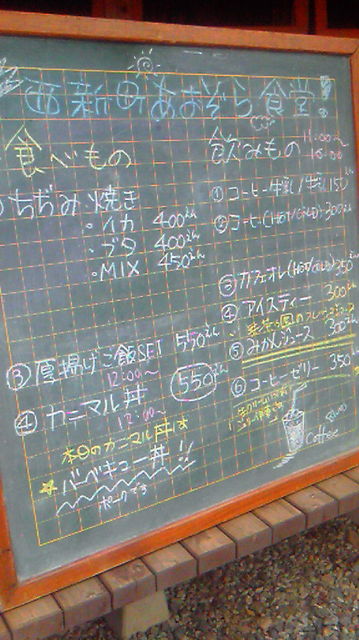 西新のあおぞら食堂。
食べもの
ちぢみ焼き
・イカ 400えん
・ブタ 400えん
・MIX 450えん
③ 厚揚げご飯SET 550えん
12:00〜
④ カニマル丼 550えん
12:00〜
本日のカニマル丼は
バーベキュー丼!!
ポークです
飲みもの
① コーヒー牛乳
② コーヒー(HOT/COLD) 300えん
③ カフェオレ(HOT/COLD) 350えん
④ アイスティー 300えん
⑤ みかんジュース 300えん
⑥ コーヒーゼリー 350えん
Coffee